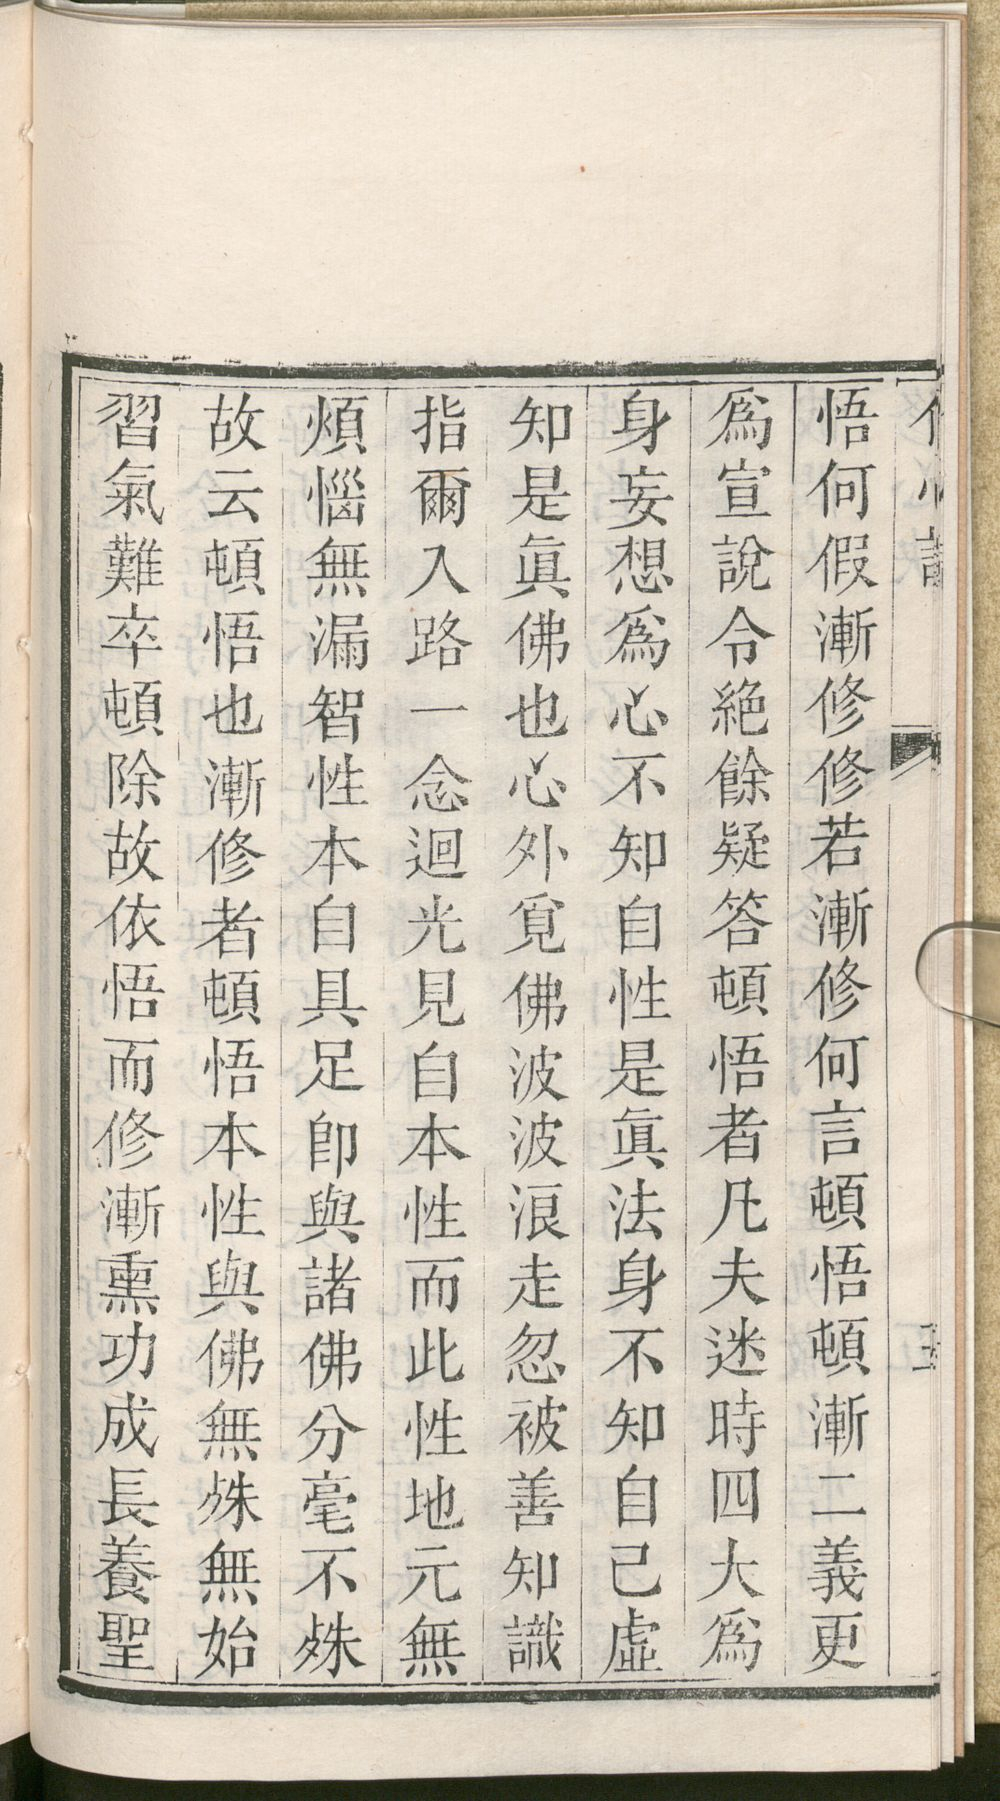 悟何假漸修修若漸修何言頓悟頓漸二義更
爲宣說令絶餘疑答頓悟者凡夫迷時四大爲
身妄想爲心不知自性是眞法身不知自己虛
知是眞佛也心外覓佛波波浪走忽被善知識
指爾入路一念迴光見自本性而此性地元無
煩惱無漏智性本自具足卽與諸佛分毫不殊
故云頓悟也漸修者頓悟本性與佛無殊無始
習氣難卒頓除故依悟而修漸熏功成長養聖